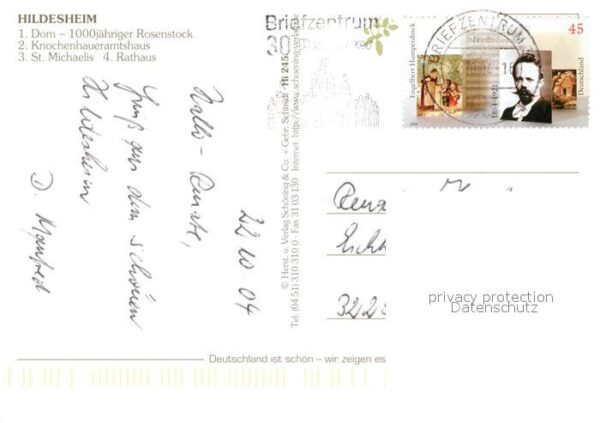 HILDESHEIM
1. Dom – 1000jähriger Rosenstock
2. Knochenhaueramtshaus
3. St. Michaelis 4. Rathaus
22.10.04
Hallo - Renate,
Gruß aus dem schönen
Hildesheim
D. Manfred
© Herst. u. Verlag Schöning & Co. + Gebr. Schmidt / Hi 245
Tel. (04 51) 310 310 0 · Fax 31 03 130 Internet: http://www.schoening-verlag.de
Briefzentrum
30
BRIEFZENTRUM
45
Engelbert Humperdinck
1854-1921
Deutschland
322
privacy protection
Datenschutz
Deutschland ist schön – wir zeigen es